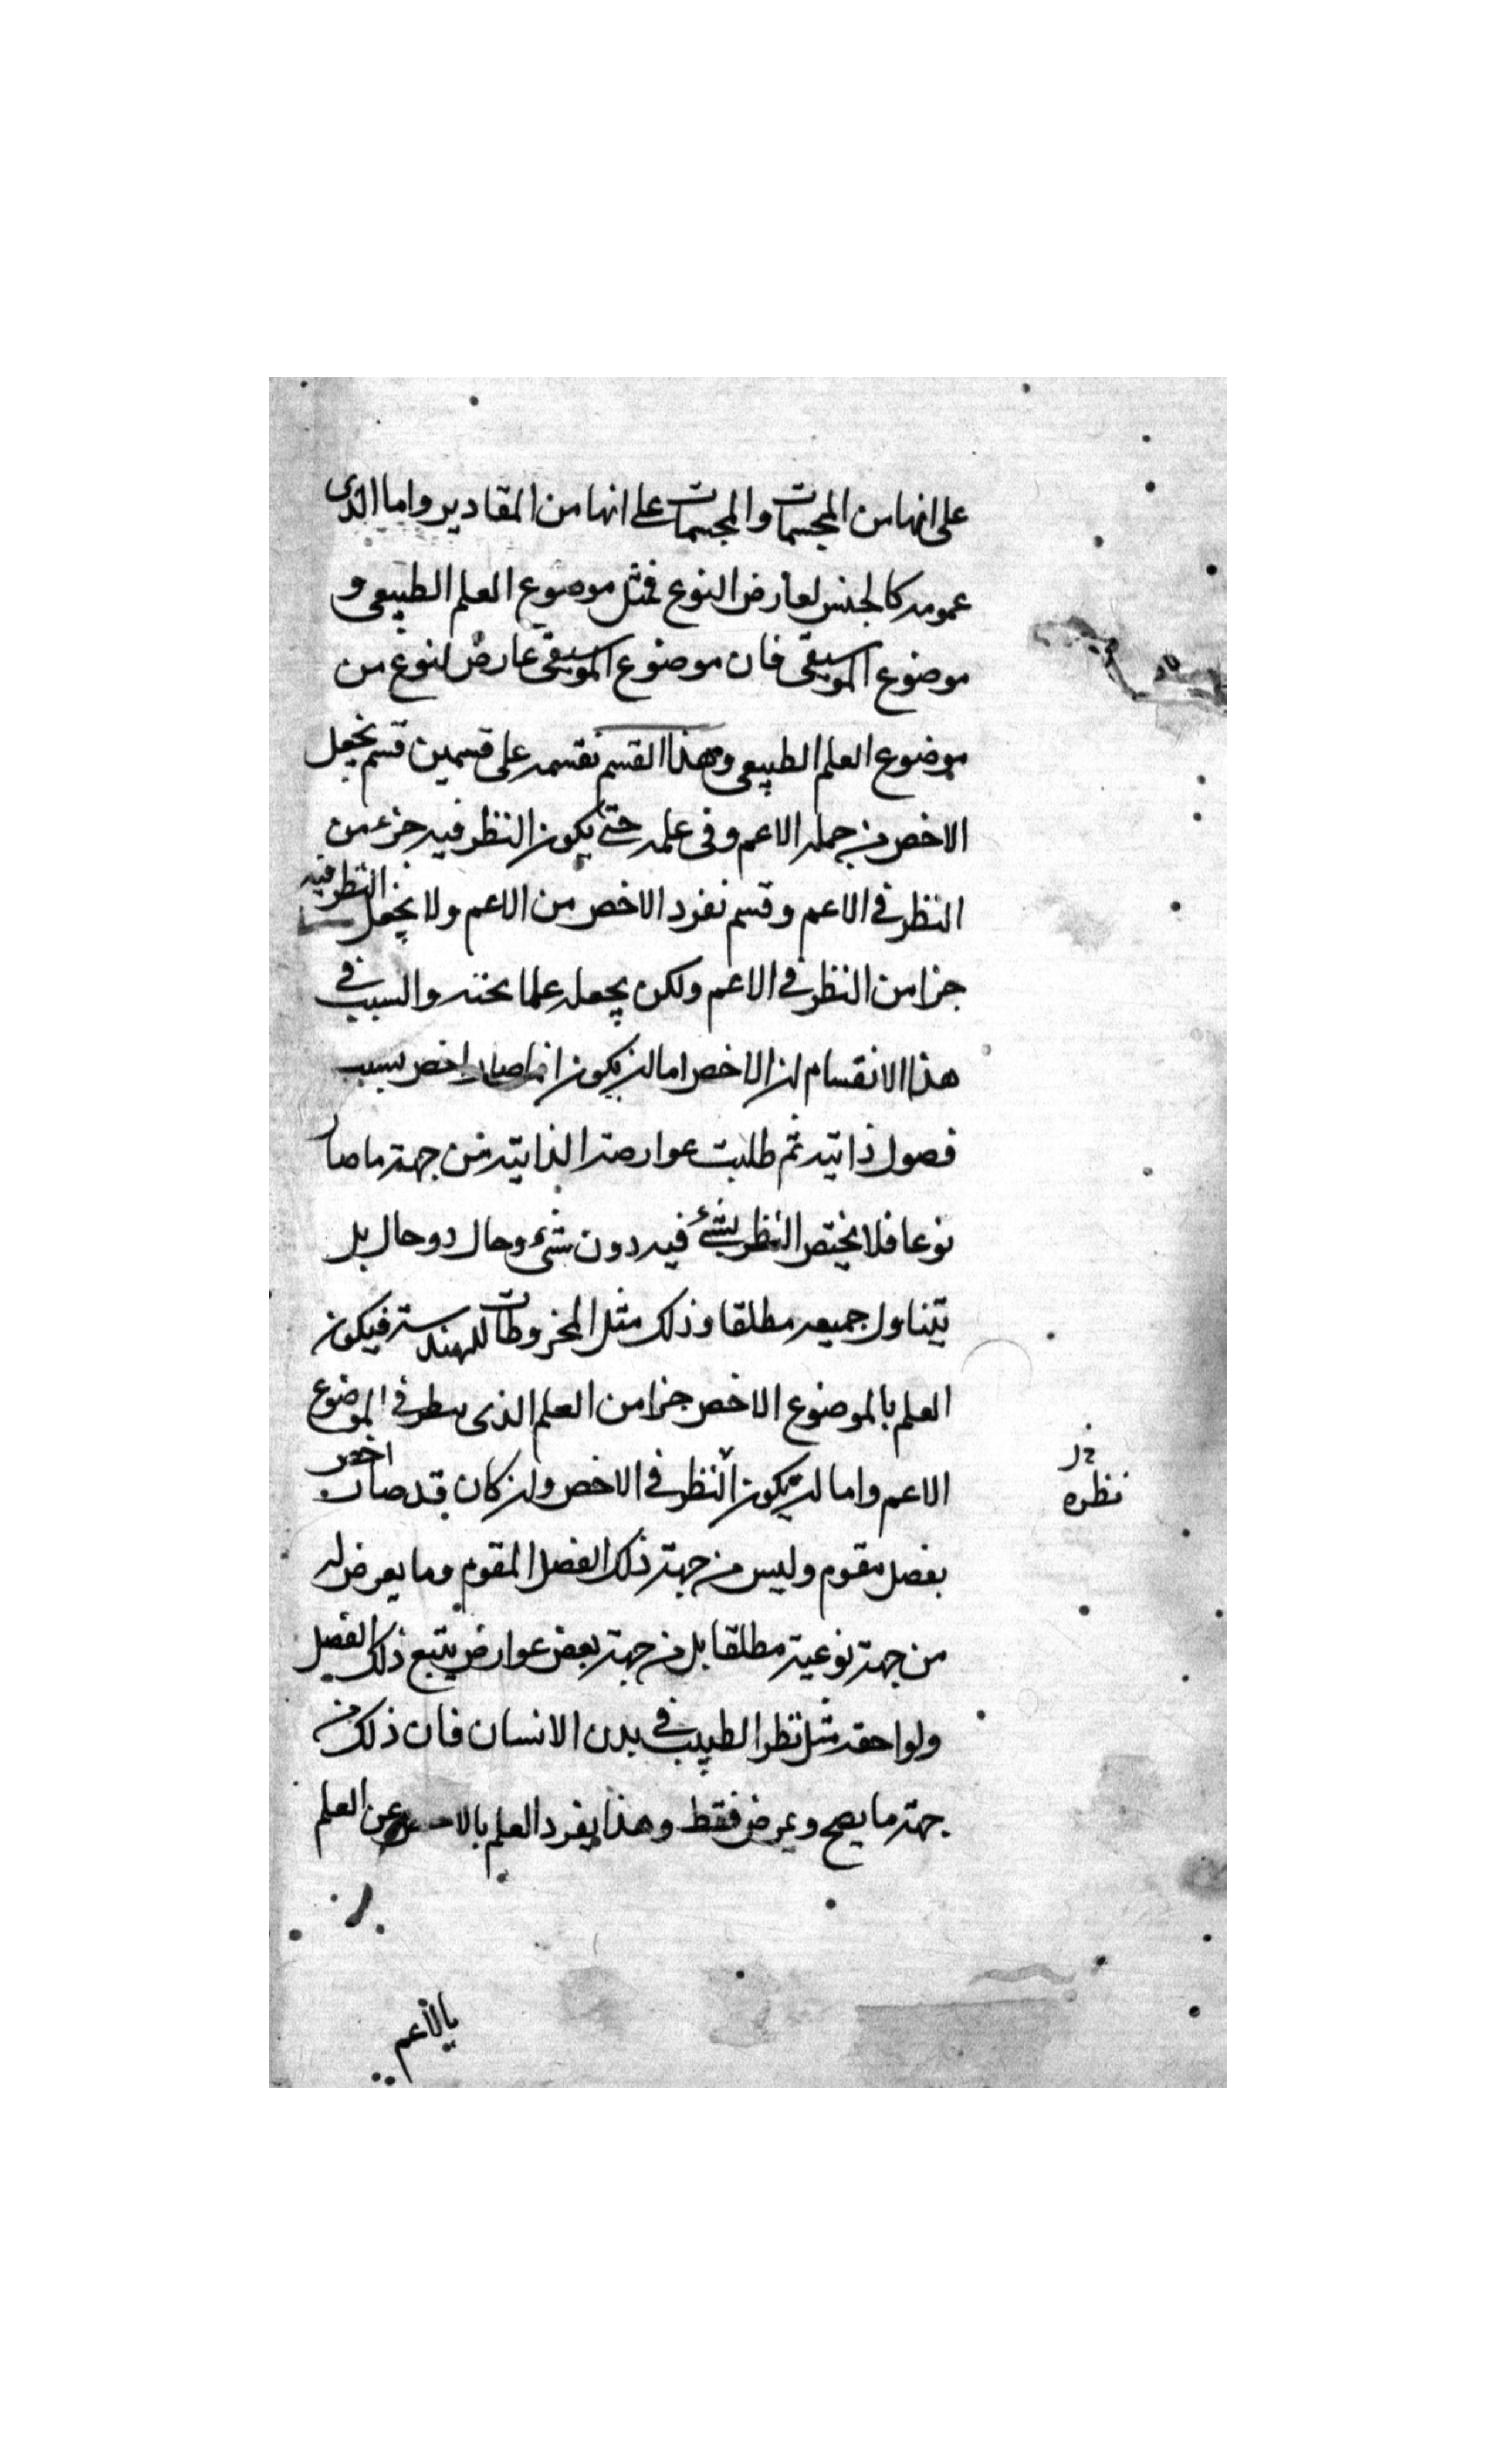 على انها من المجسمات والمجسمات على انها من المقادير واما الذى
عمومه كالجنس لعارض النوع فمثل موضوع العلم الطبيعى و
موضوع الموسيقى فان موضوع الموسيقى عارض لنوع من
موضوع العلم الطبيعى وهذا القسم نقسمه على قسمين قسم يجعل
الاخص من جمله الاعم وفى علمه حتى يكون النظر فيه جزء من
النظر فى الاعم وقسم نفرد الاخص من الاعم ولا يجعل النظر فيه
جزا من النظر فى الاعم ولكن يجعله علما تحته والسبب فى
هذا الانقسام ان الاخص اما ان يكون انما صار اخص بسبب
فصول ذاتيه ثم طلبت عوارضه الذاتيه من جهة ما صار
نوعا فلا يختص النظر بشئ فيه دون شئ وحال دو حال بل
يتناول جميعه مطلقا وذلك مثل المخروطات للهندسة فيكون
العلم بالموضوع الاخص جزا من العلم الذى ينظر فى الموضوع
الاعم واما ان يكون النظر فى الاخص وان كان قد صار اخص
نظره
بفصل مقوم وليس من جهة ذلك الفصل المقوم وما يعرض له
من جهة نوعية مطلقا بل من جهة بعض عوارض يتبع ذلك الفصل
ولواحقه مثل نظر الطبيب فى بدن الانسان فان ذلك من
جهة ما يصح ويمرض فقط وهذا يفرد العلم بالاخص عن العلم
بالأعم